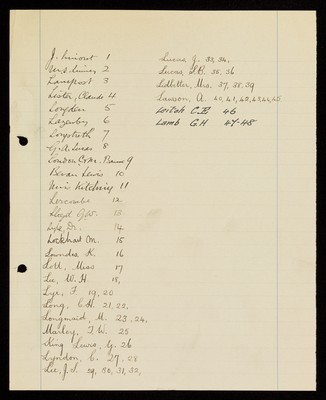 J. Liniout 1
2
3
Lester, Claude 4
Longden 5
Lazenby 6
Longstreth 7
G. A. Lucas 8
London Com. Bank 9
Bevan Lewis 10
Kitching 11
Loscombe 12
Lloyd Geo. 13.
Lyle Dr. 14
Lockhart Om. 15
Lowndes K. 16
Lott, Miss 17
Lee, W. H. 18,
Lye, F. 19, 20
Long, C. H. 21, 22,
Longmaid, M. 23, 24,
Marley, T. W. 25
King Lewis, G. 26
Lyndon, C. 27, 28
Lee, J. S. 29, 30, 31, 32,
Lucas G. 33, 34,
Lucas, F. B. 35, 36
Lidletter, Mrs. 37, 38, 39
Lawson, A. 40, 41, 42, 43, 44, 45
Leitch C. E. 46
Lamb G. H 47-48